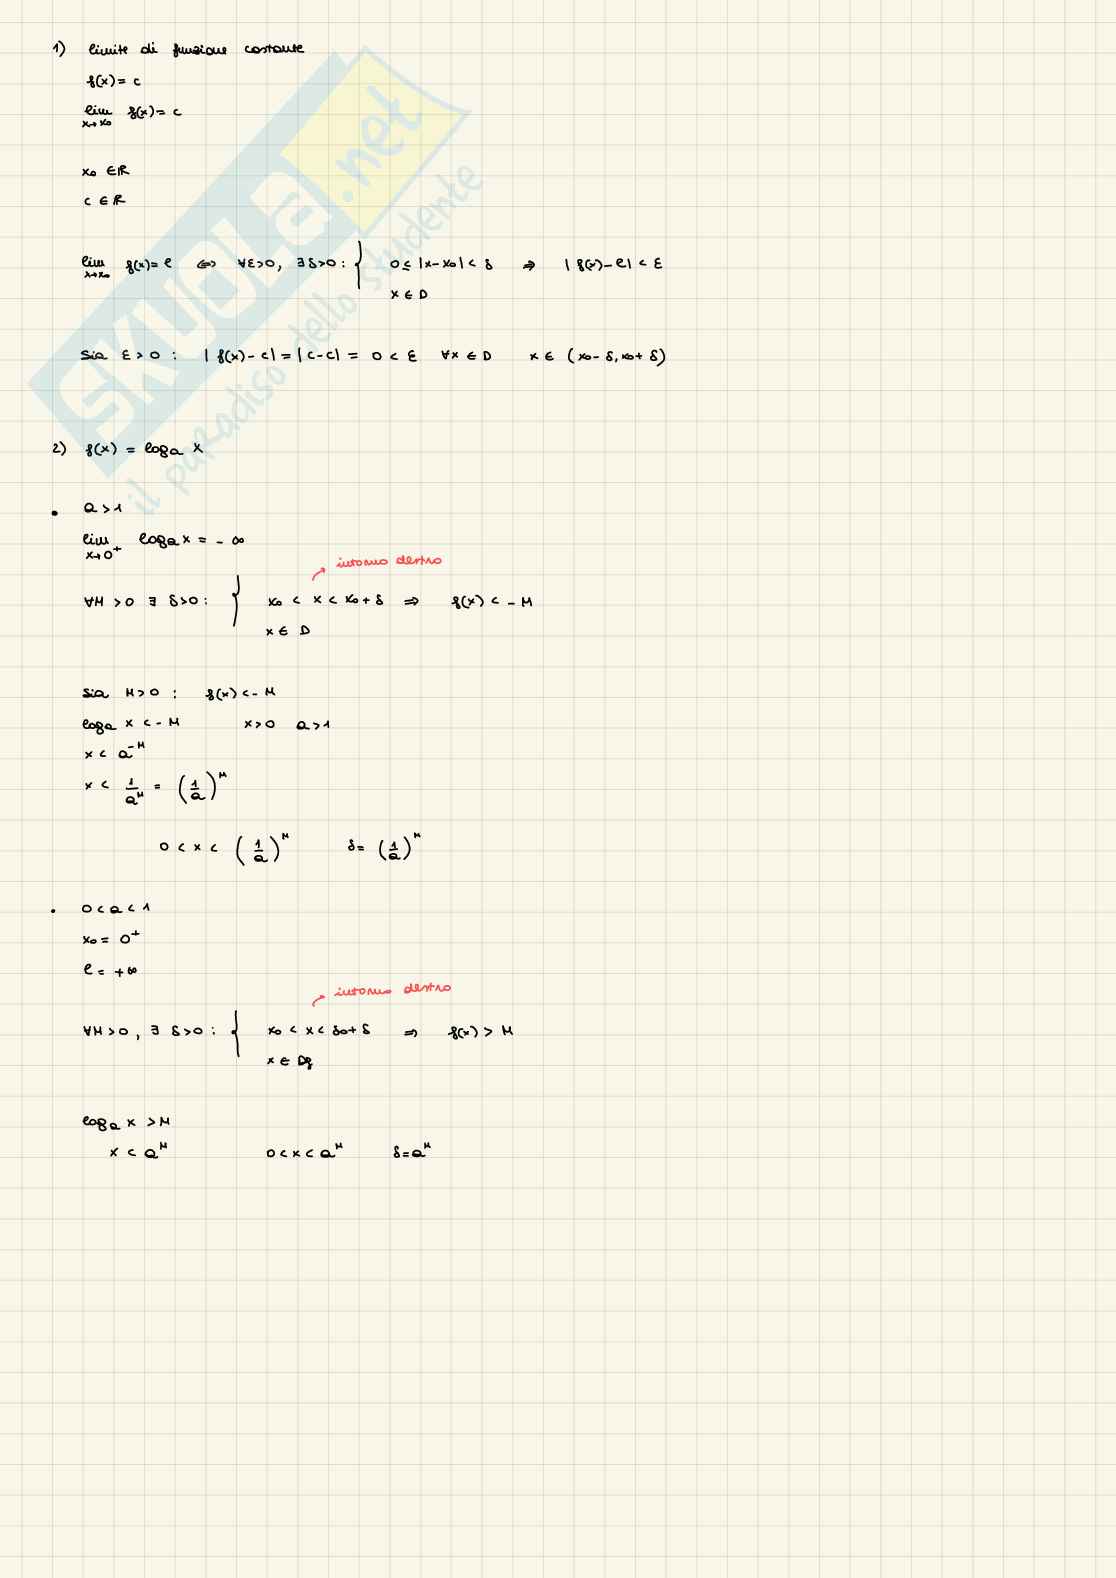 1) limite di funzione costante
f(x) = c
lim x→x₀ f(x) = c
x₀ ∈ ℝ
c ∈ ℝ
lim x→x₀ f(x) = l ⇔ ∀ε>0, ∃ δ>0 : { 0 ≤ |x-x₀| < δ ⇒ |f(x)-l| < ε
x ∈ D
Sia ε > 0 : |f(x)-c| = |c-c| = 0 < ε ∀x ∈ D x ∈ (x₀-δ, x₀+δ)
2) f(x) = logₐ x
• a > 1
lim x→0⁺ logₐ x = -∞
intorno destro
∀M > 0 ∃ δ>0 : { x₀ < x < x₀+δ ⇒ f(x) < -M
x ∈ D
Sia M>0 : f(x) < -M
logₐ x < -M x>0 a>1
x < a^-M
x < 1/a^M = (1/a)^M
0 < x < (1/a)^M δ = (1/a)^M
• 0 < a < 1
x₀ = 0⁺
l = +∞
intorno destro
∀M>0, ∃ δ>0 : { x₀ < x < δ₀+δ ⇒ f(x) > M
x ∈ Df
logₐ x > M
x < a^M 0 < x < a^M δ = a^M
SKUOLA.net
il paradiso dello studente